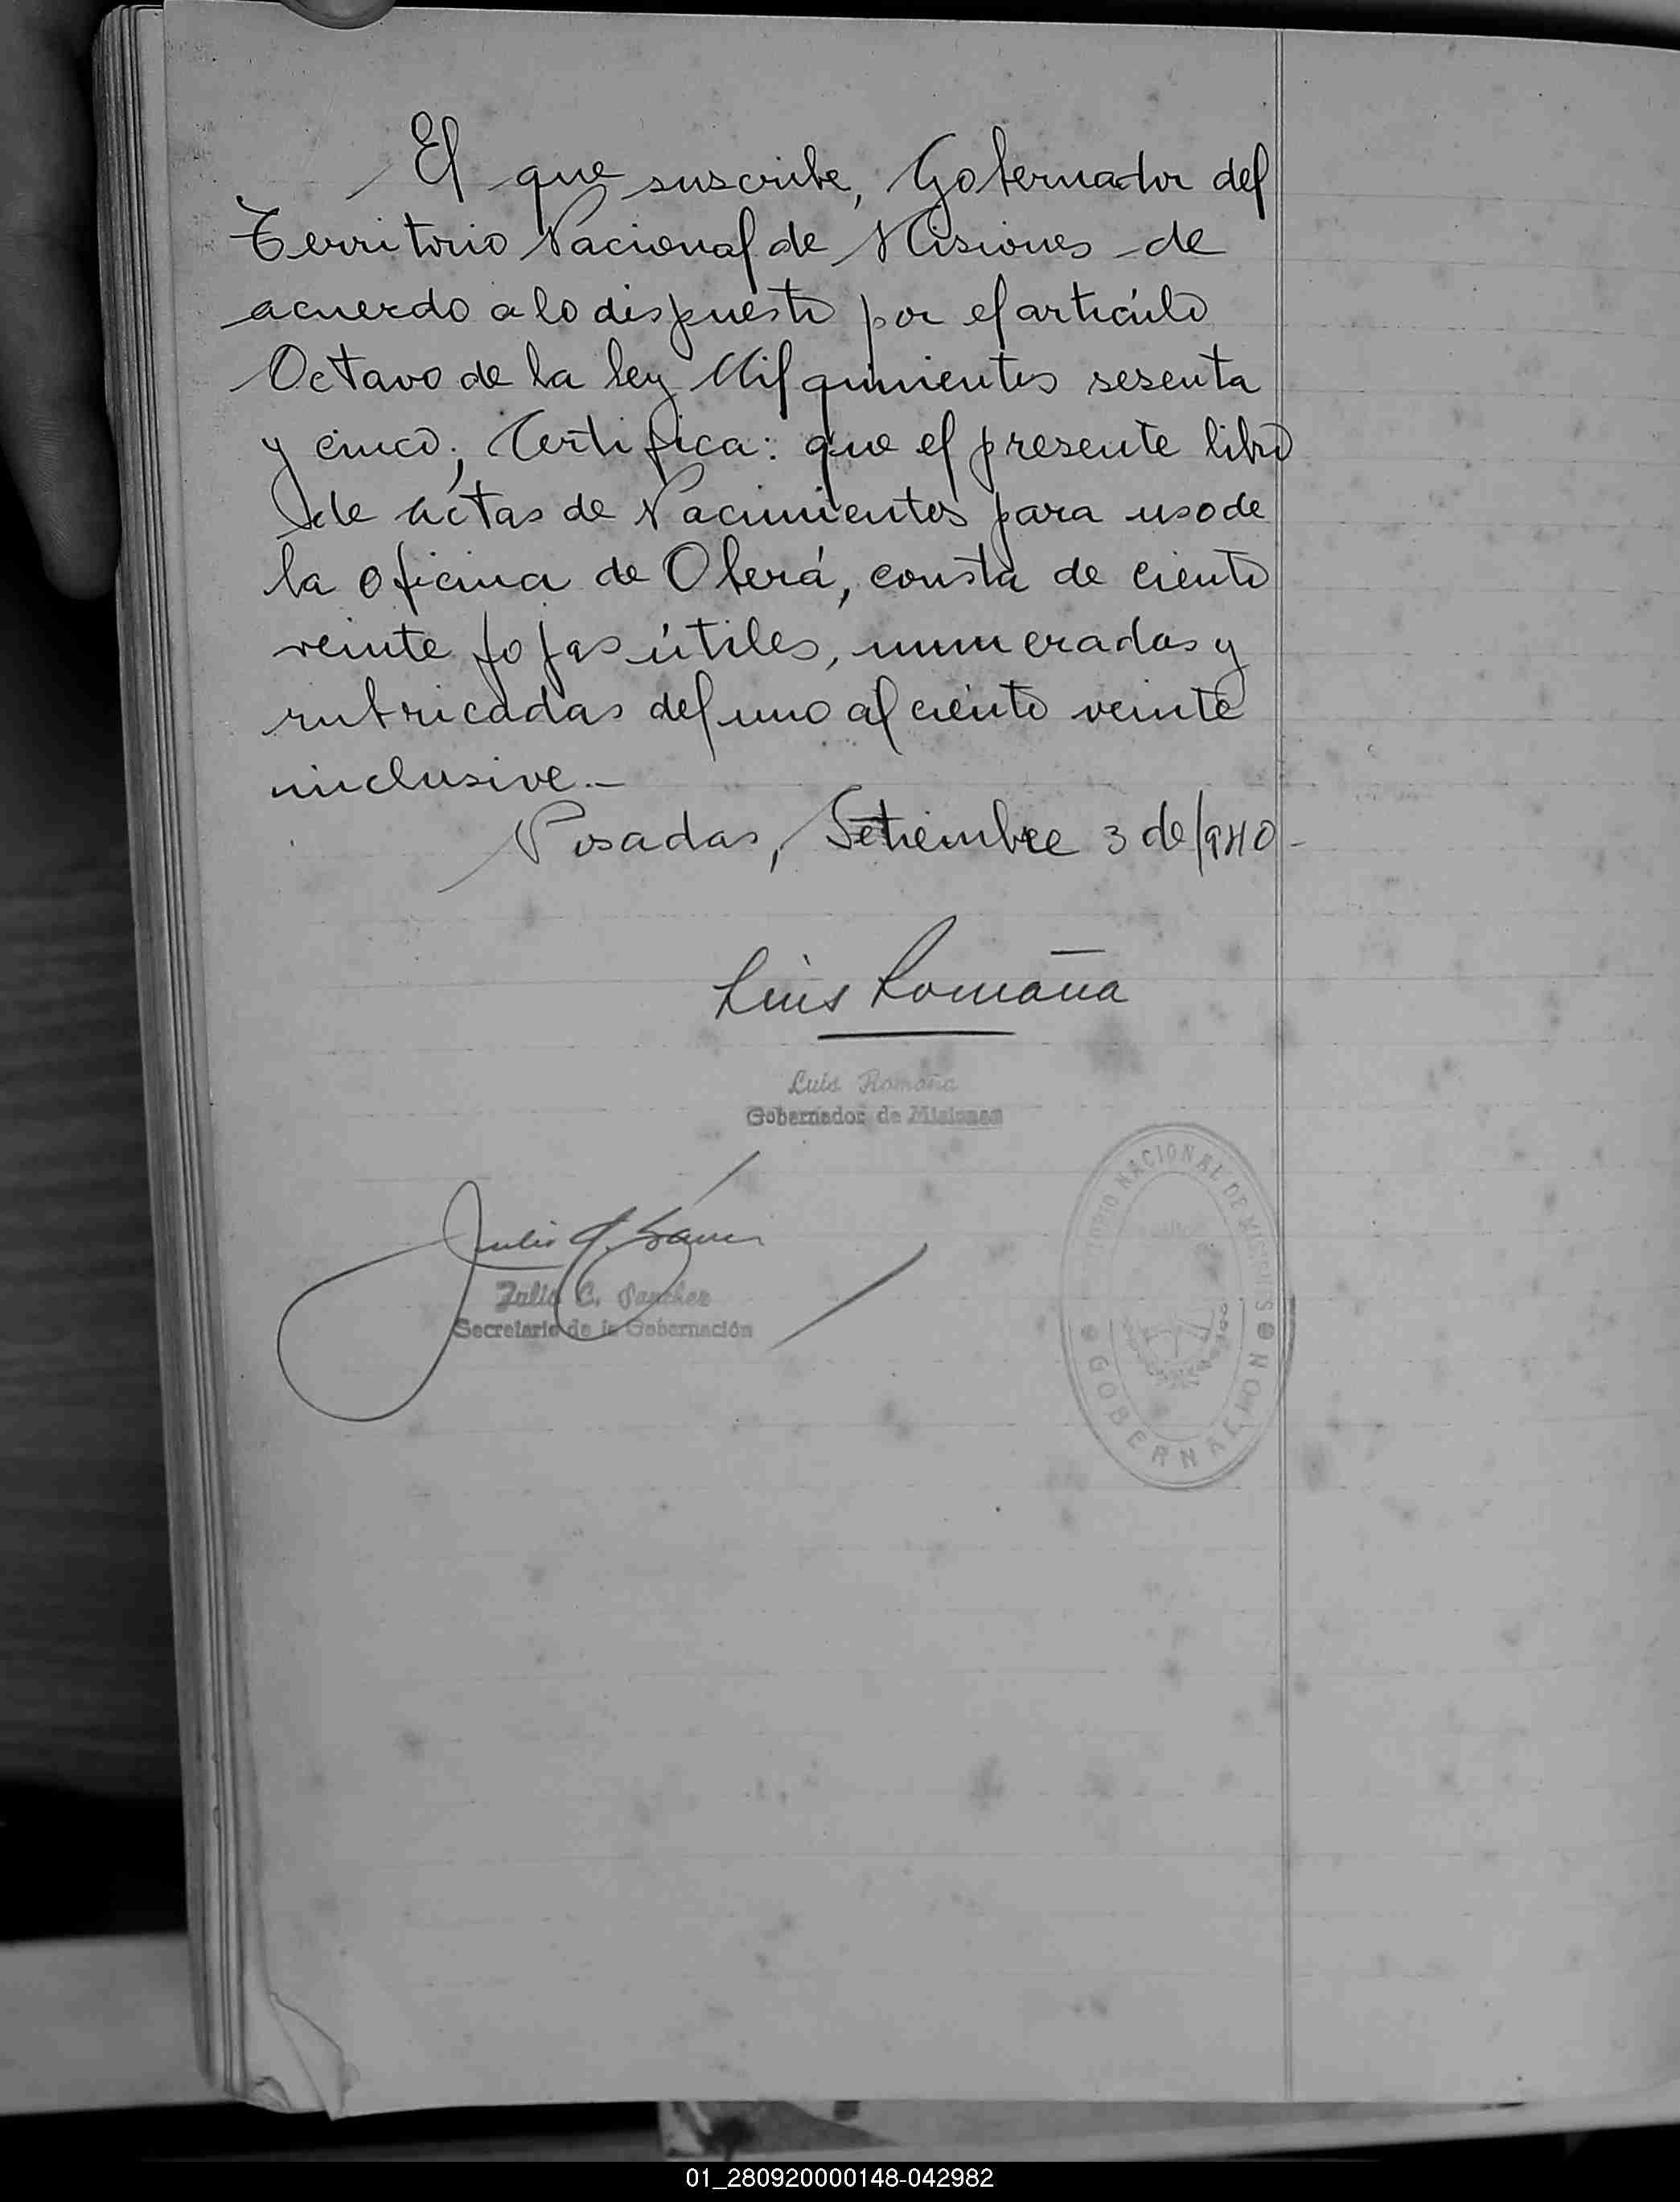 El que suscribe, Gobernador del
Territorio Nacional de Misiones de
acuerdo a lo dispuesto por el artículo
Octavo de la ley Mil quinientos sesenta
y cinco, Certifica: que el presente libro
de actas de Nacimientos para uso de
la oficina de Oberá, consta de ciento
veinte fojas útiles, numeradas y
rubricadas del uno al ciento veinte
inclusive.-
Posadas, Setiembre 3 de 1940-
Luis Romaña
Luis Romaña
Gobernador de Misiones
TERRITORIO NACIONAL DE MISIONES
GOBERNACION
Julio C. Sanchez
Secretario de la Gobernación
01_280920000148-042982